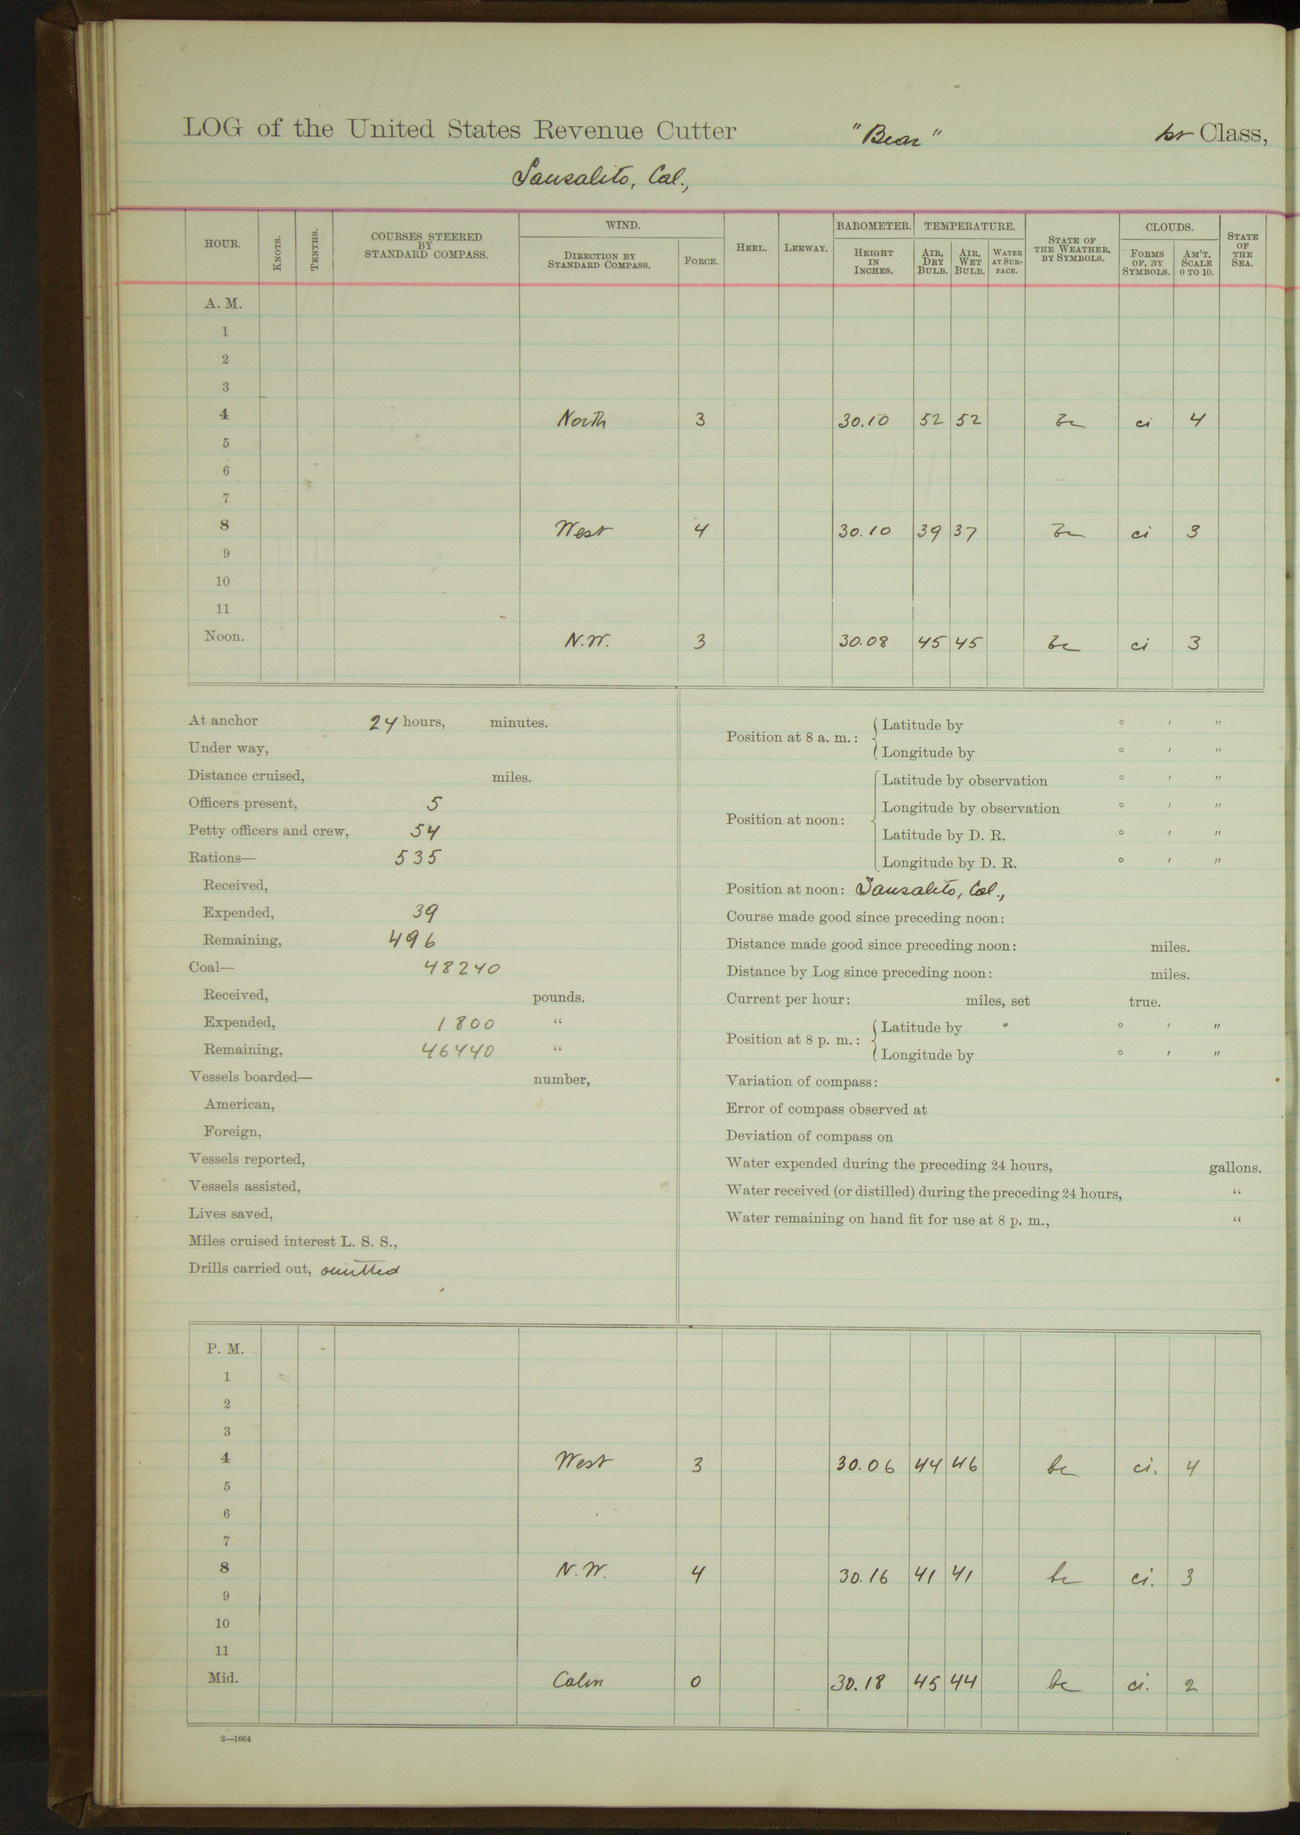 LOG of the United States Revenue Cutter "Bear" 1st Class,
Sausalito, Cal.,
HOUR. KNOTS. TENTHS. COURSES STEERED BY STANDARD COMPASS. WIND. DIRECTION BY STANDARD COMPASS. FORCE. HEEL. LEEWAY. BAROMETER. HEIGHT IN INCHES. TEMPERATURE. AIR, DRY BULB. AIR, WET BULB. WATER AT SURFACE. STATE OF THE WEATHER, BY SYMBOLS. CLOUDS. FORMS OF, BY SYMBOLS. AM'T, SCALE 0 TO 10. STATE OF THE SEA.
A. M.
1
2
3
4 North 3 30.10 52 52 bc ci 4
5
6
7
8 West 4 30.10 39 37 bc ci 3
9
10
11
Noon. N.W. 3 30.08 45 45 bc ci 3
At anchor 24 hours, minutes.
Under way,
Distance cruised, miles.
Officers present, 5
Petty officers and crew, 54
Rations— 535
Received,
Expended, 39
Remaining, 496
Coal— 48240
Received, pounds.
Expended, 1800 "
Remaining, 46440 "
Vessels boarded— number,
American,
Foreign,
Vessels reported,
Vessels assisted,
Lives saved,
Miles cruised interest L. S. S.,
Drills carried out, omitted
Position at 8 a. m.: Latitude by ° ′ ″
Longitude by ° ′ ″
Position at noon: Latitude by observation ° ′ ″
Longitude by observation ° ′ ″
Latitude by D. R. ° ′ ″
Longitude by D. R. ° ′ ″
Position at noon: Sausalito, Cal.,
Course made good since preceding noon:
Distance made good since preceding noon: miles.
Distance by Log since preceding noon: miles.
Current per hour: miles, set true.
Position at 8 p. m.: Latitude by ° ′ ″
Longitude by ° ′ ″
Variation of compass:
Error of compass observed at
Deviation of compass on
Water expended during the preceding 24 hours, gallons.
Water received (or distilled) during the preceding 24 hours, "
Water remaining on hand fit for use at 8 p. m., "
P. M.
1
2
3
4 West 3 30.06 44 46 bc ci. 4
5
6
7
8 N.W. 4 30.16 41 41 bc ci. 3
9
10
11
Mid. Calm 0 30.18 45 44 bc ci. 2
2—1664